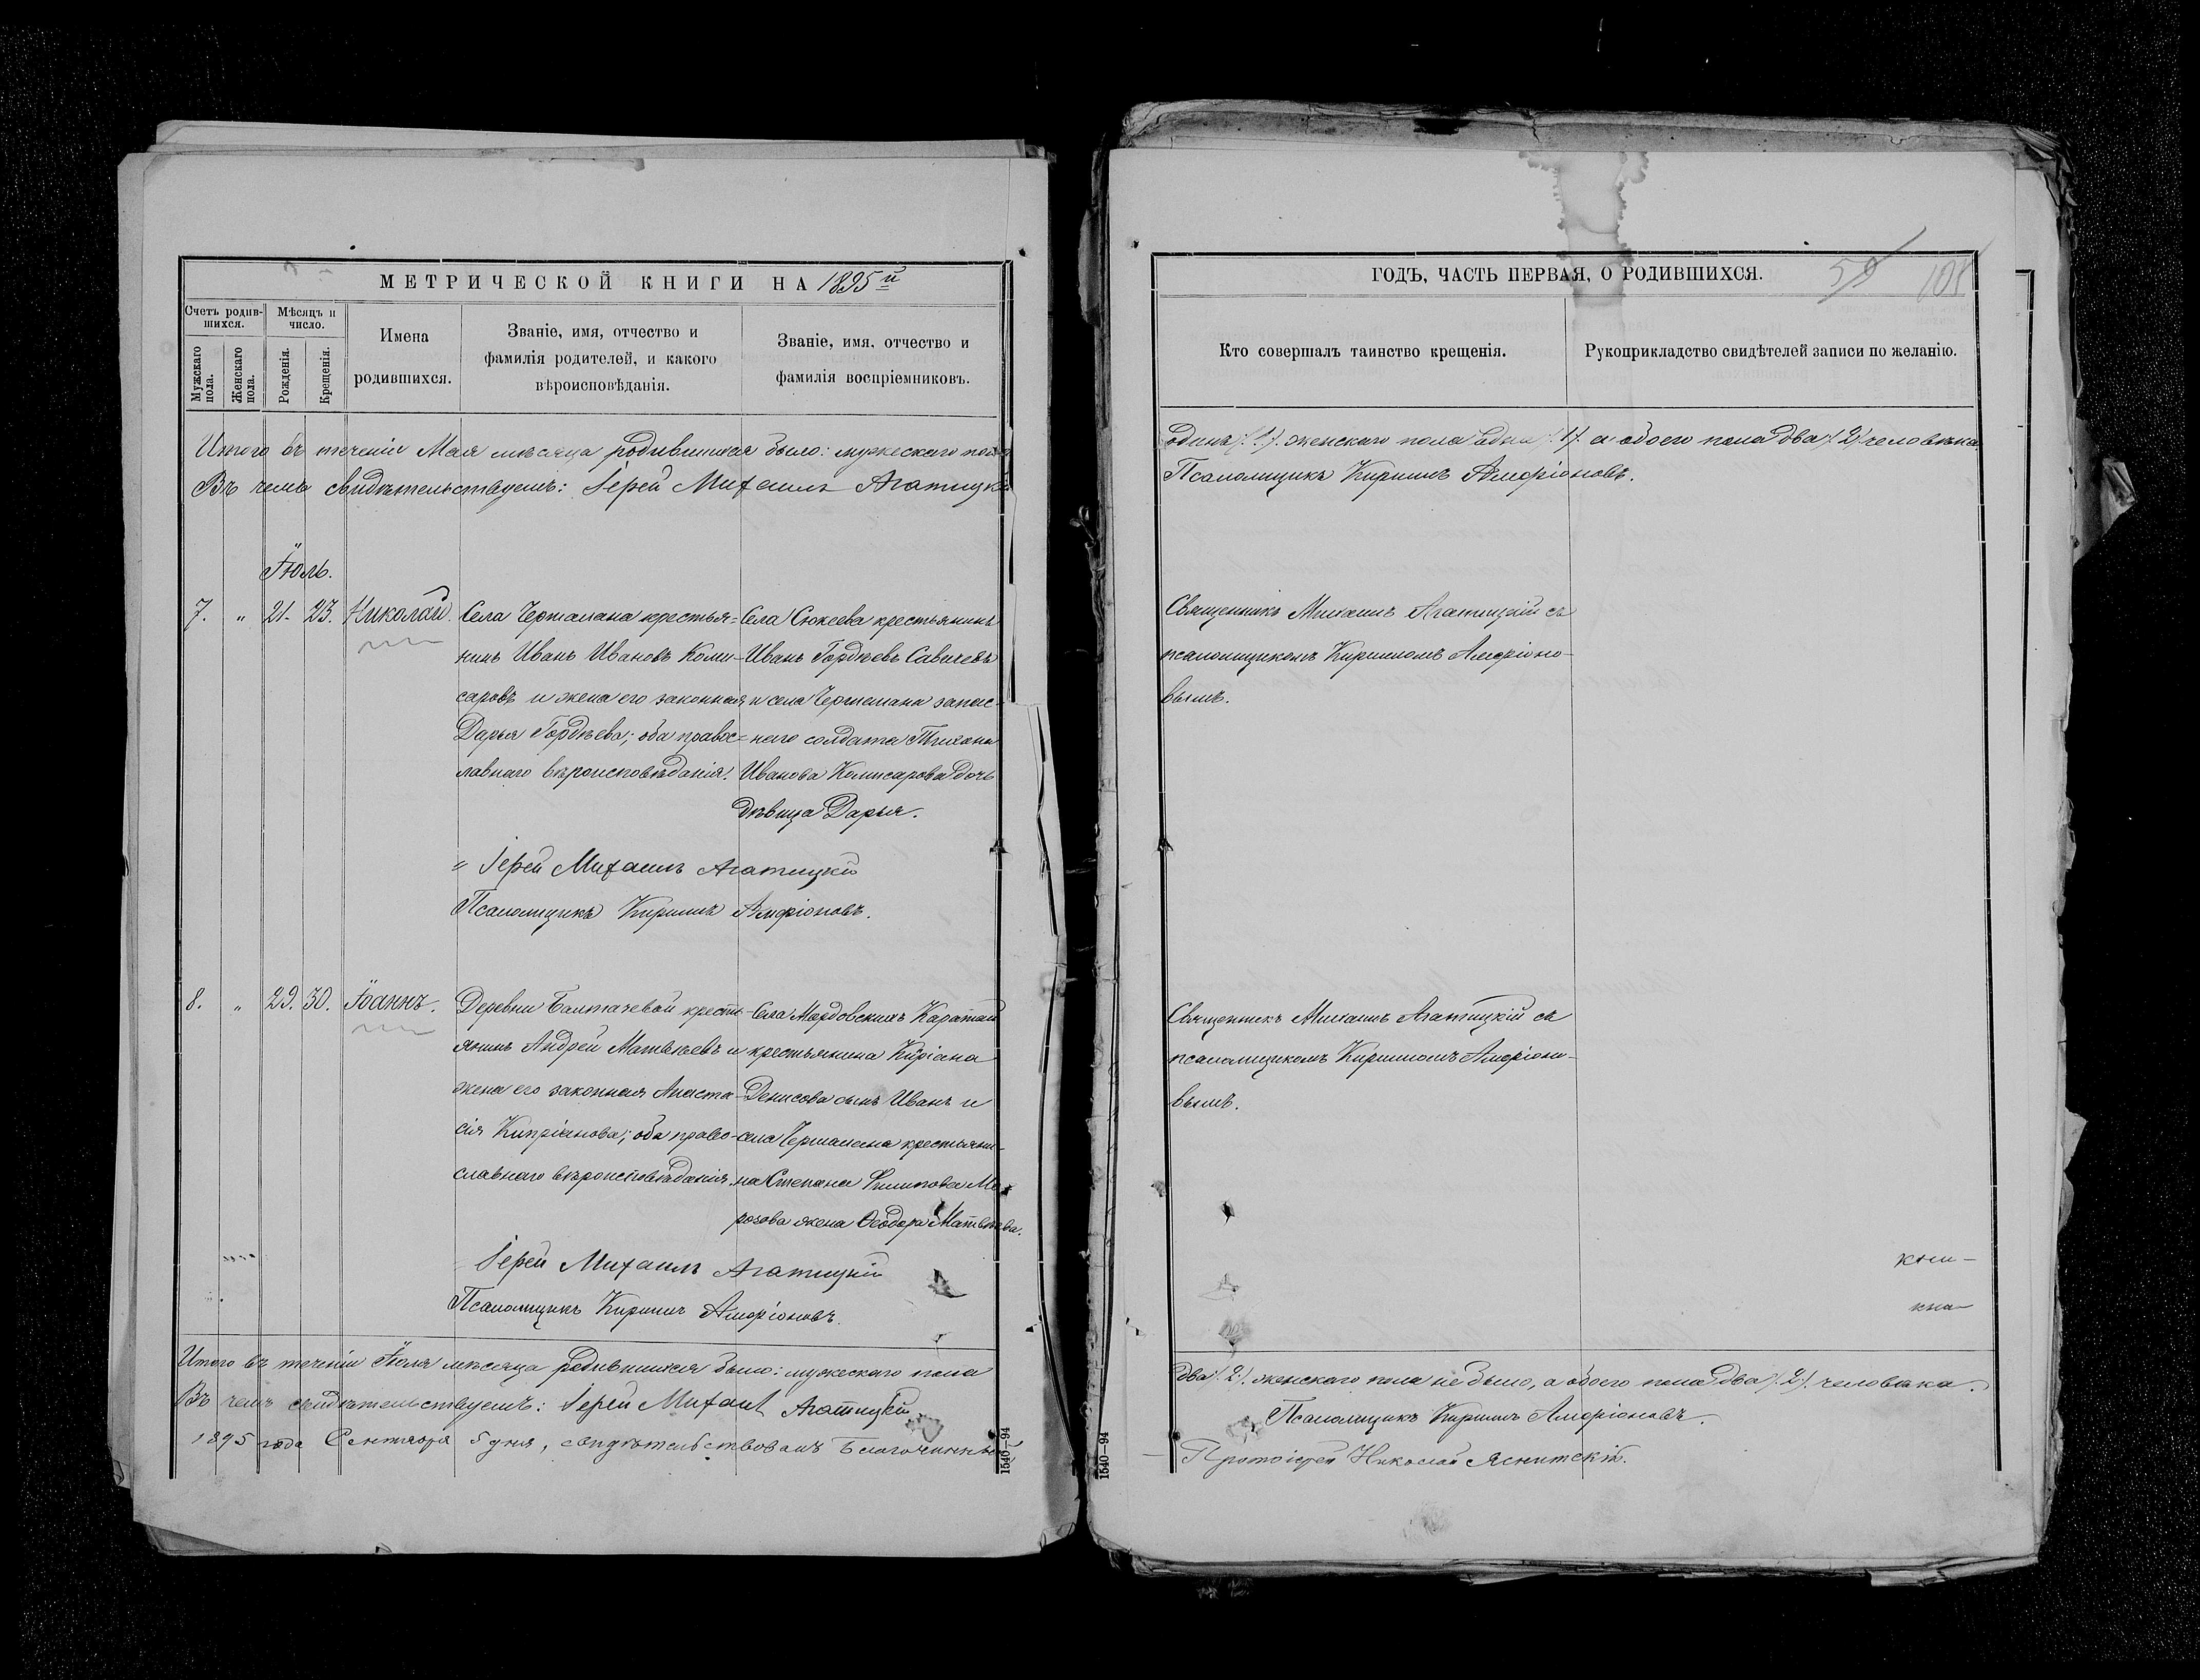 МЕТРИЧЕСКОЙ КНИГИ НА 1895й
Счетъ родив-
шихся.
Мужскаго
пола.
Женскаго
пола.
Мѣсяцъ и
число.
Рожденія.
Крещенія.
Имена
родившихся.
Званіе, имя, отчество и
фамилія родителей, и какого
вѣроисповѣданія.
Званіе, имя, отчество и
фамилія воспріемниковъ.
Итого въ теченіи Мая мѣсяца родившихся было: мужескаго пола
Въ чемъ свидѣтельствуемъ: Іерей Михаилъ Агатицкій
Іюль.
7. " 21. 23. Николай.
Села Чертагана крестья=
нинъ Иванъ Ивановъ Коми-
саровъ и жена его законная
Дарья Гордѣева; оба правос=
лавнаго вѣроисповѣданія.
Села Сюкеева крестьянинъ
Иванъ Гордѣевъ Савичевъ
и села запас-
наго солдата Тихона
Иванова Комисарова дочь
дѣвица Дарья.
" Іерей Михаилъ Агатицкій
Псаломщикъ Кириллъ Амфріоновъ.
8. " 29. 30. Іоаннъ.
Деревни Балтачевой кресть-
янинъ Андрей Матвѣевъ и
жена его законная Анаста-
сія Кипріанова; оба право-
славнаго вѣроисповѣданія.
Села Мордовскихъ Каратай
крестьянина Кипріана
Денисова сынъ Иванъ и
села крестьяни-
на Степана Филипова Мо-
розова жена Ѳеодора Матвѣева.
Іерей Михаилъ Агатицкій
Псаломщикъ Кириллъ Амфріоновъ.
Итого въ теченіи Іюля мѣсяца родившихся было: мужескаго пола
Въ чемъ свидѣтельствуемъ: Іерей Михаилъ Агатицкій
1895 года Сентября 5 дня, свидѣтельствовалъ Благочинный
1540—94
ГОДЪ, ЧАСТЬ ПЕРВАЯ, О РОДИВШИХСЯ.
59 101
Кто совершалъ таинство крещенія.
Рукоприкладство свидѣтелей записи по желанію.
одинъ /.1/. женскаго пола одна /.1/. а обоего пола два /.2/. человѣка.
Псаломщикъ Кириллъ Амфріоновъ.
Священникъ Михаилъ Агатицкій съ
псаломщикомъ Кирилломъ Амфріоно-
вымъ.
Священникъ Михаилъ Агатицкій съ
псаломщикомъ Кирилломъ Амфріоно-
вымъ.
два /.2/. женскаго пола не было, а обоего пола два /.2/. человѣка.
Псаломщикъ Кириллъ Амфріоновъ.
Протоіерей Николай Яснитскій.
1540—94